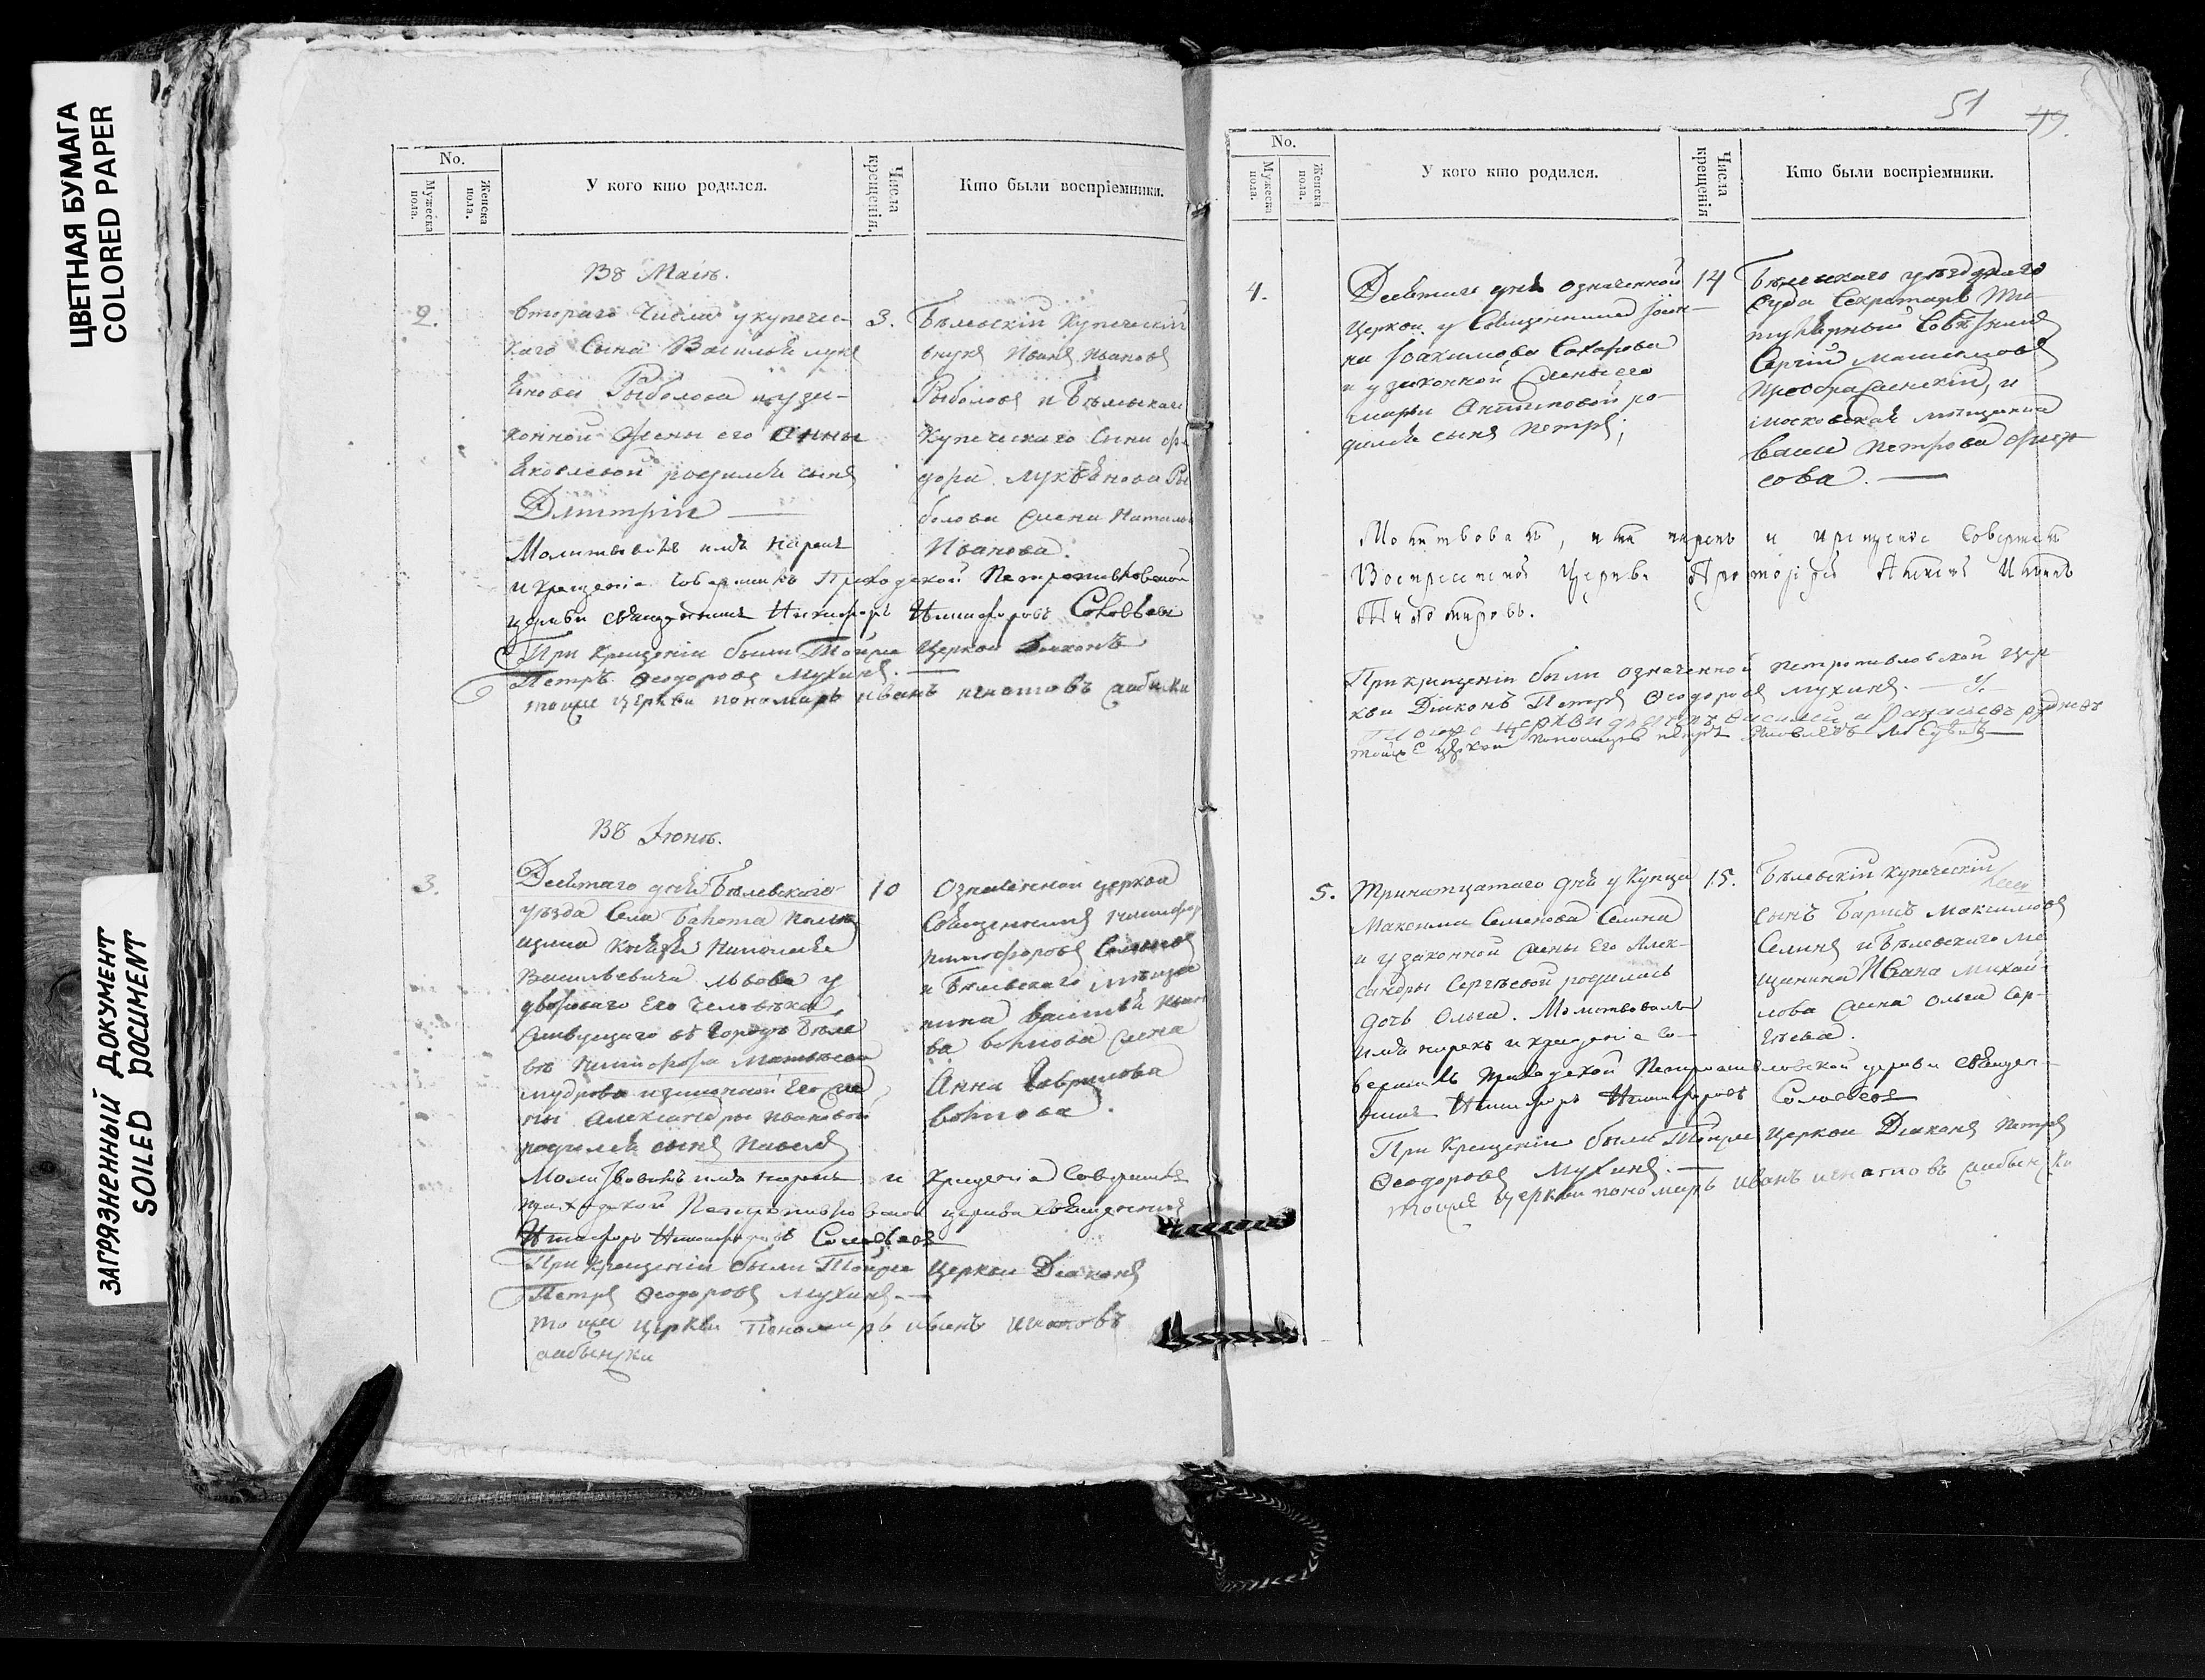 ЦВЕТНАЯ БУМАГА
COLORED PAPER
ЗАГРЯЗНЕННЫЙ ДОКУМЕНТ
SOILED DOCUMENT
No.
Мужеска пола.
Женска пола.
У кого кто родился.
Числа крещенія.
Кто были воспріемники.
Въ Маіѣ.
2.
втораго числа у купечес-
каго сына Василья Лукя
янова Рыболова и уза-
конной жены его Анны
Яковлевой родился сынъ
Дмитрій
3.
Бѣлевскій купеческій
внукъ Иванъ Ивановъ
Рыболовъ и Бѣлевскаго
купеческаго сына Фе
дора Лукьянова Ры
болова жена Наталья
Иванова.
Молитвовалъ имя нарекъ
и крещеніе совершилъ Приходской Петропавловской
церкви священникъ Никифоръ Никифоровъ Соловьевъ
При крещеніи были Тойже церкви діаконъ
Петръ Ѳеодоровъ Мухинъ.
тойже церкви пономарь иванъ игнатовъ
Въ Іюнѣ.
3.
Десятаго дня Бѣлевскаго
уѣзда села
щика Князя Николая
Васильевича Львова у
двороваго его человѣка
живущаго въ городѣ Бѣле
вѣ Никифора Матвѣева
и законной его же
ны Александры Ивановой
родился сынъ Павелъ
10
Означенной церкви
Священникъ Никифоръ
Никифоровъ Соловьевъ
и Бѣлевскаго мѣщан
нина Василья Ивано
ва жена
Анна Гаврилова
Молитвовалъ имя нарекъ и крещеніе совершилъ
приходской Петропавловской церкви священникъ
Никифоръ Никифоровъ Соловьевъ
При крещеніи были Тойже церкви Діаконъ
Петръ Ѳеодоровъ Мухинъ.
тойже церкви Пономарь иванъ игнатовъ
51
49.
No.
Мужеска пола.
Женска пола.
У кого кто родился.
Числа крещенія
Кто были воспріемники.
4.
Десятаго дня означенной
церкви у Священника Іоан-
на Іоакимова Сахарова
и у законной жены его
Марьи Антиповой ро-
дился сынъ Петръ;
14
Бѣлевскаго уѣзднаго
суда Секретарь Ти-
тулярный Совѣтникъ
Сергій
Преображенскій, и
московская мѣщанка
Петрова
сова.
Молитвовалъ, имя нарекъ и крещеніе совершилъ
Воскресенской Церкви Протоіерей Алексѣй Ивановъ
При крещеніи были означенной Петропавловской цер
кви Діаконъ Петръ Ѳеодоровъ Мухинъ.
тойже церкви
5.
Тринатцатаго дня у купца
Максима Семенова Селина
и у законной жены его Алек-
сандры Сергѣевой родилась
дочь Ольга. Молитвовалъ
имя нарекъ и крещеніе со-
15.
Бѣлевскій купеческій
сынъ Борисъ Максимовъ
Селинъ и Бѣлевскаго ме
щанина Ивана Михай-
лова жена Ольга Сер-
геева.
вершилъ приходской Петропавловской церкви священ-
никъ Никифоръ Никифоровъ Соловьевъ
При крещеніи были Тойже церкви Діаконъ Петръ
Ѳеодоровъ Мухинъ.
тойже церкви пономарь иванъ игнатовъ